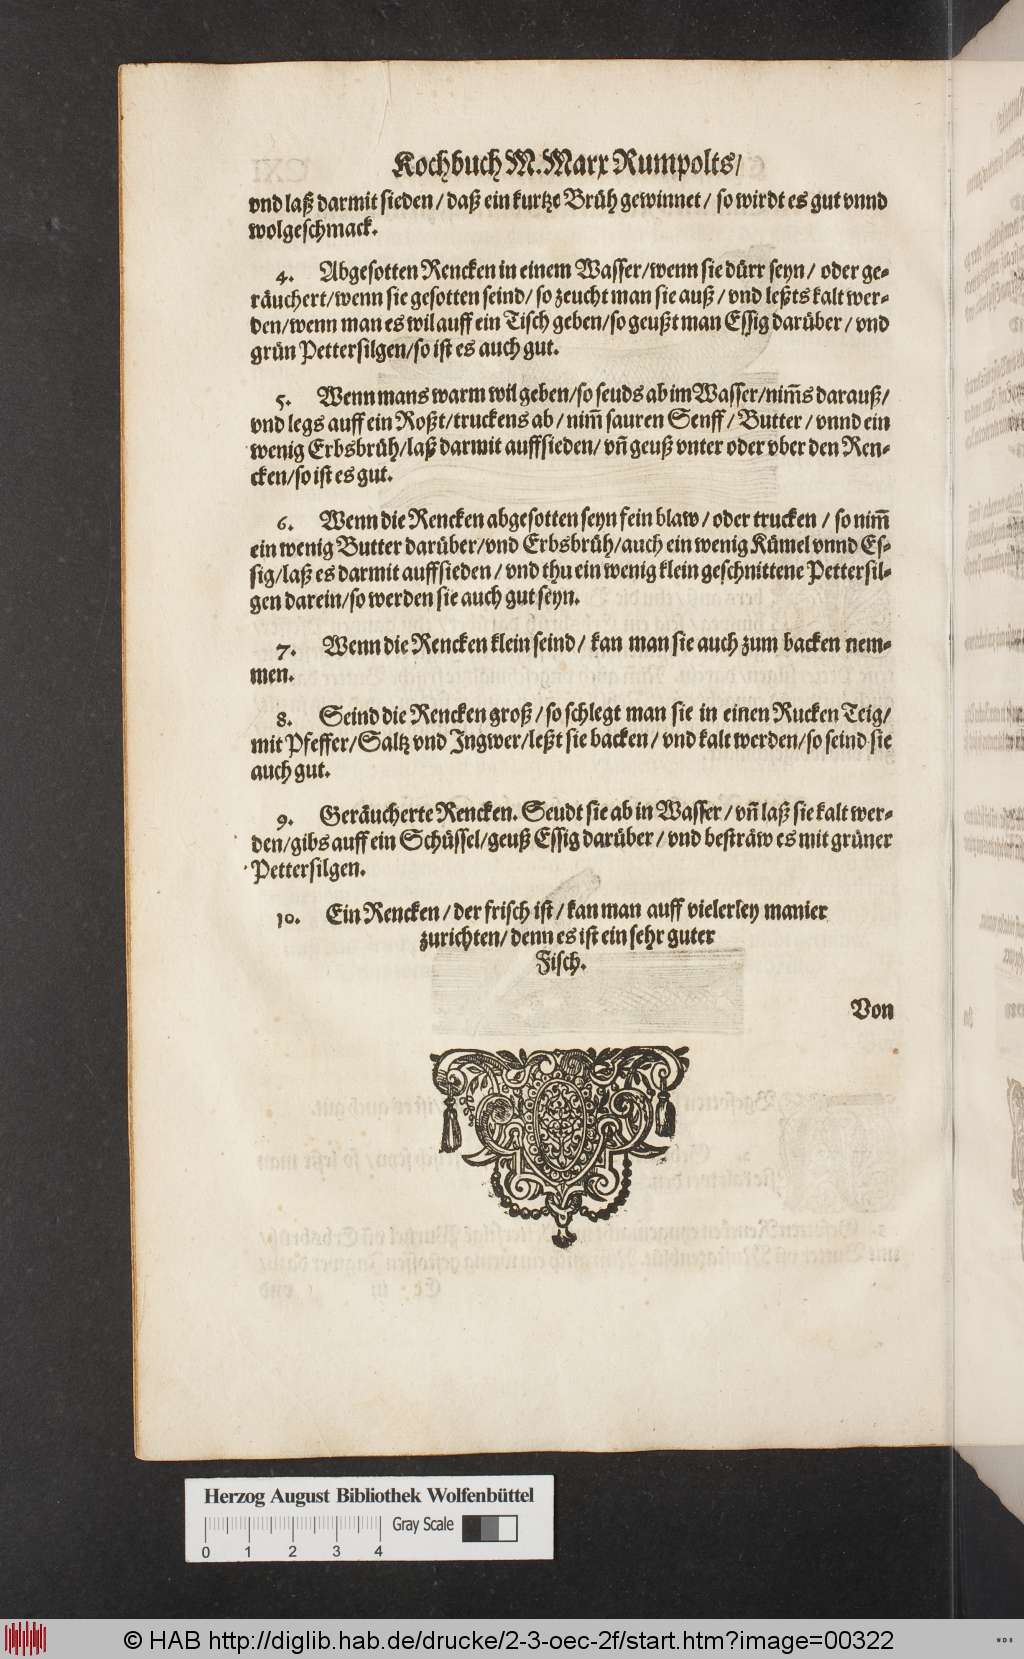 Kochbuch M. Marx Rumpolts/
vnd laß darmit sieden / daß ein kurtze Brüh gewinnet / so wirdt es gut vnnd
wolgeschmack.
4. Abgesotten Rencken in einem Wasser/wenn sie dürr seyn / oder ge-
räuchert/wenn sie gesotten seind/ so zeucht man sie auß / vnd leßts kalt wer-
den/wenn man es wil auff ein Tisch geben/so geußt man Essig darüber / vnd
grün Pettersilgen/so ist es auch gut.
5. Wenn mans warm wil geben/so seuds ab im Wasser/nim̃s darauß/
vnd legs auff ein Roßt/truckens ab / nim̃ sauren Senff / Butter / vnnd ein
wenig Erbsbrüh/laß darmit auffsieden/ vñ geuß vnter oder vber den Ren-
cken/so ist es gut.
6. Wenn die Rencken abgesotten seyn fein blaw / oder trucken / so nim̃
ein wenig Butter darüber/vnd Erbsbrüh/auch ein wenig Kümel vnnd Es-
sig/laß es darmit auffsieden / vnd thu ein wenig klein geschnittene Pettersil-
gen darein/so werden sie auch gut seyn.
7. Wenn die Rencken klein seind / kan man sie auch zum backen nem-
men.
8. Seind die Rencken groß / so schlegt man sie in einen Rucken Teig/
mit Pfeffer/Saltz vnd Ingwer/leßt sie backen / vnd kalt werden/so seind sie
auch gut.
9. Geräucherte Rencken. Seudt sie ab in Wasser / vñ laß sie kalt wer-
den/gibs auff ein Schüssel/geuß Essig darüber / vnd besträw es mit grüner
Pettersilgen.
10. Ein Rencken / der frisch ist / kan man auff vielerley manier
zurichten/ denn es ist ein sehr guter
Fisch.
Von
Herzog August Bibliothek Wolfenbüttel
Gray Scale
0 1 2 3 4
© HAB http://diglib.hab.de/drucke/2-3-oec-2f/start.htm?image=00322